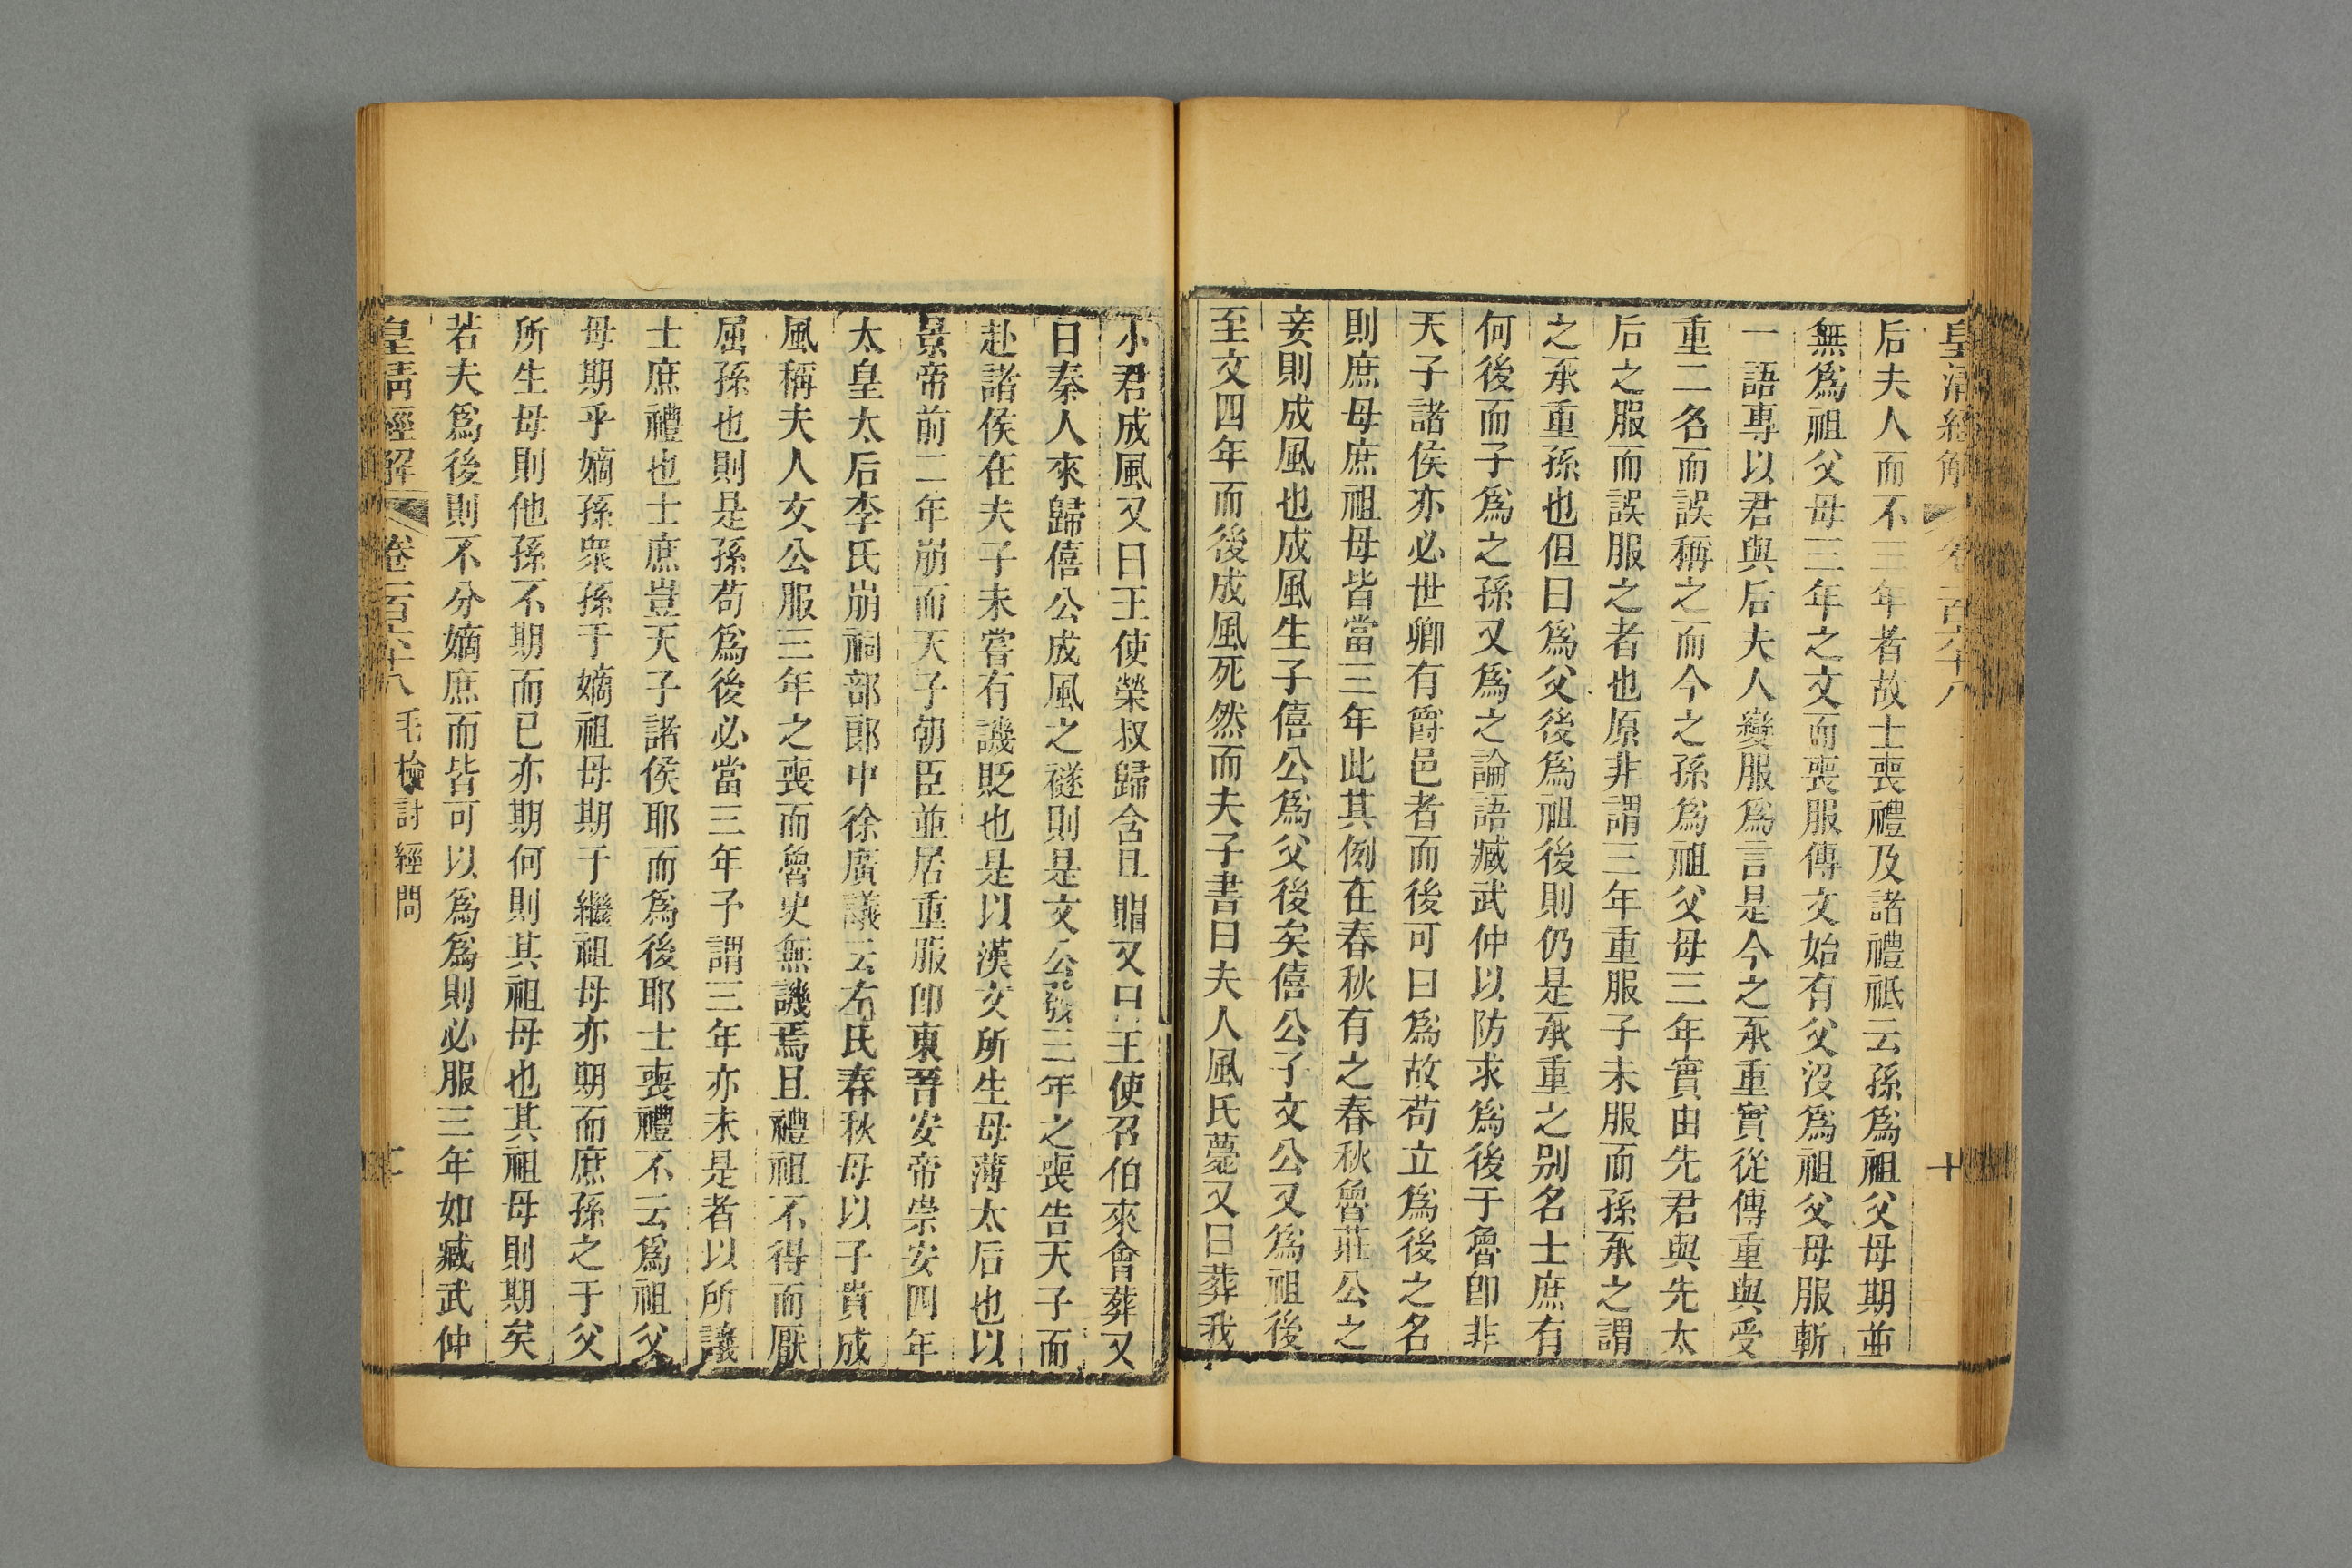 皇清經解 卷一百六十八 十
后夫人而不三年者故士喪禮及諸禮祗云孫爲祖父母期並
無爲祖父母三年之文而喪服傳文始有父沒爲祖父母服斬
一語專以君與后夫人變服爲言是今之承重實從傳重與受
重二名而誤稱之而今之孫爲祖父母三年實由先君與先太
后之服而誤服之者也原非謂三年重服子未服而孫承之謂
之承重孫也但曰爲父後爲祖後則仍是承重之别名士庶有
何後而子爲之孫又爲之論語臧武仲以防求爲後于魯卽非
天子諸侯亦必世卿有爵邑者而後可曰爲故苟立爲後之名
則庶母庶祖母皆當三年此其例在春秋有之春秋魯莊公之
妾則成風也成風生子僖公爲父後矣僖公子文公又爲祖後
至文四年而後成風死然而夫子書曰夫人風氏薨又曰葬我
小君成風又曰王使榮叔歸含且賵又曰王使召伯來會葬又
曰秦人來歸僖公成風之襚則是文公發三年之喪告天子而
赴諸侯在夫子未嘗有譏貶也是以漢文所生母薄太后也以
景帝前二年崩而天子朝臣並居重服卽東晉安帝崇安四年
太皇太后李氏崩祠部郎中徐廣議云左氏春秋母以子貴成
風稱夫人文公服三年之喪而魯史無譏焉且禮祖不得而厭
屈孫也則是孫苟爲後必當三年予謂三年亦未是者以所議
士庶禮也士庶豈天子諸侯耶而爲後耶士喪禮不云爲祖父
母期乎嫡孫衆孫于嫡祖母期于繼祖母亦期而庶孫之于父
所生母則他孫不期而已亦期何則其祖母也其祖母則期矣
若夫爲後則不分嫡庶而皆可以爲爲則必服三年如臧武仲
皇清經解 卷一百六十八 毛檢討經問 十一